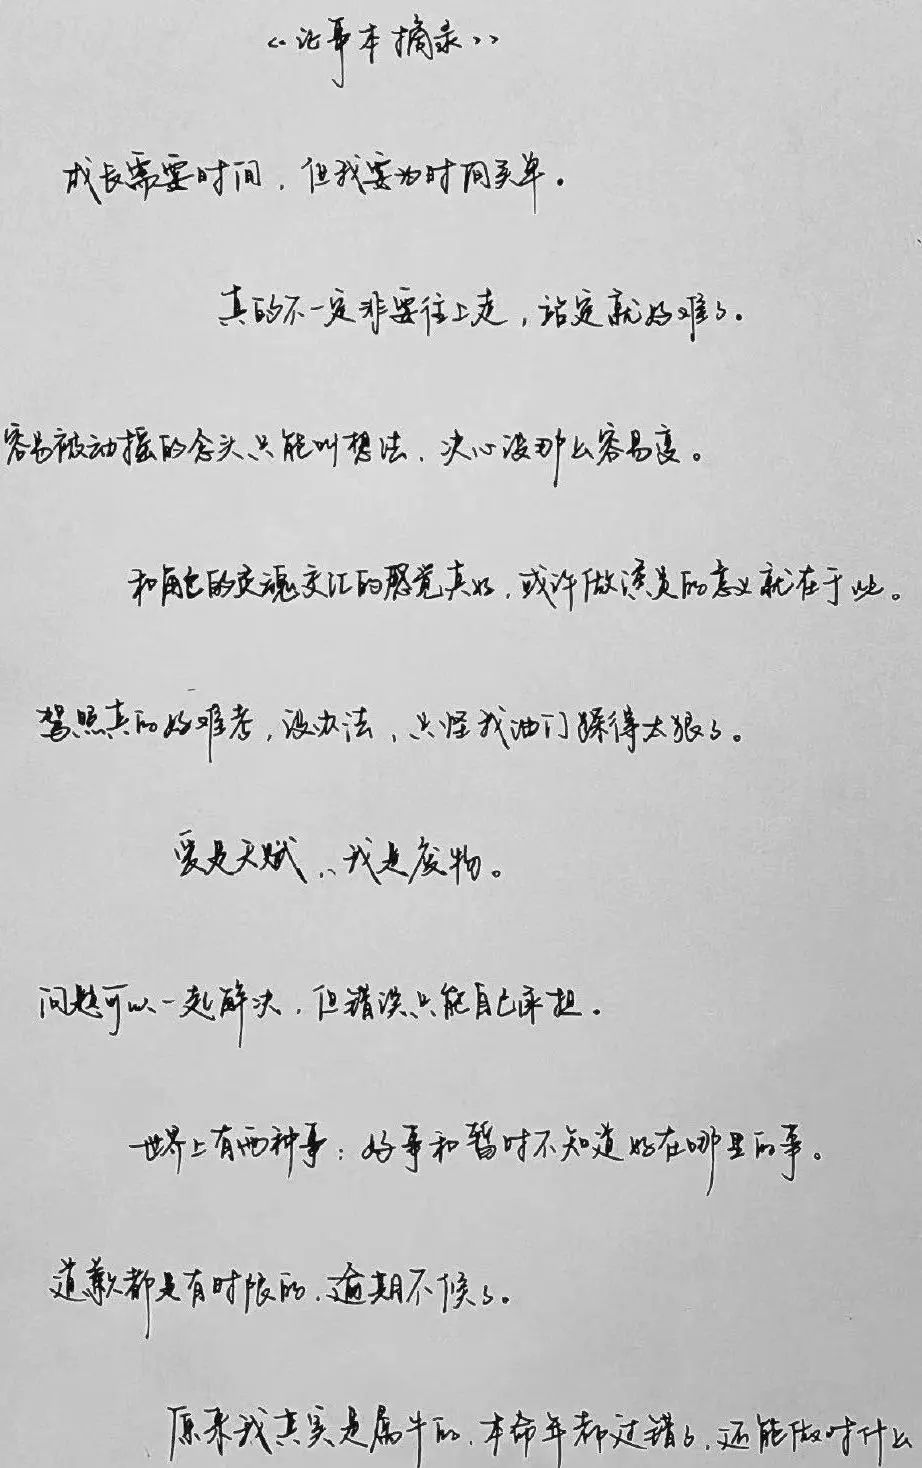 《记事本摘录》
成长需要时间，但我要为时间买单。
真的不一定非要往上走，站定就好难了。
容易被动摇的念头只能叫想法，决心没那么容易变。
和角色的灵魂交汇的感觉真好，或许做演员的意义就在于此。
驾照真的好难考，没办法，只怪我油门踩得太狠了。
爱是天赋，我是废物。
问题可以一起解决，但错误只能自己承担。
世界上有两种事：好事和暂时不知道好在哪里的事。
道歉都是有时限的，逾期不候了。
原来我其实是属牛的，本命年都过错了，还能做对什么